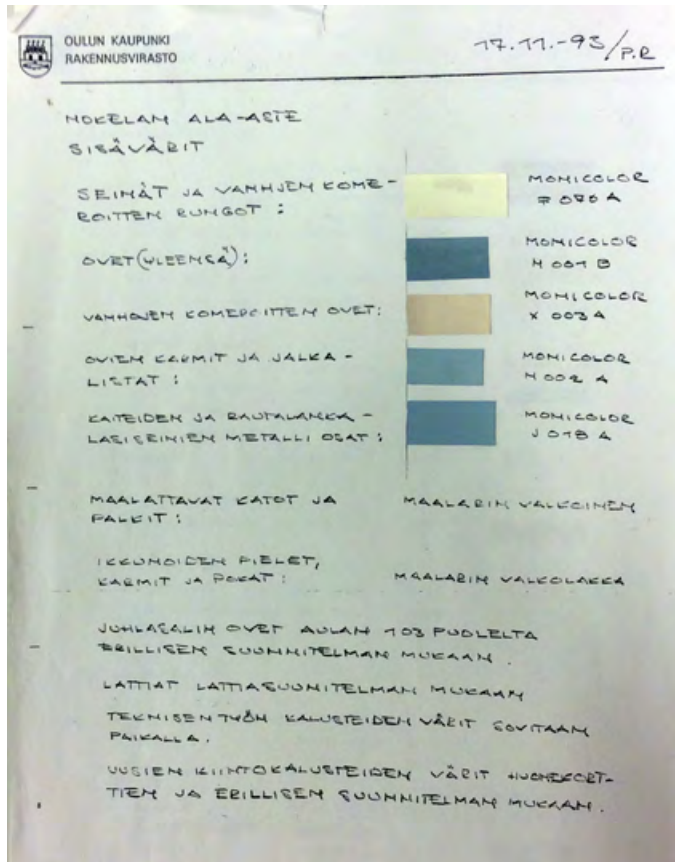 OULUN KAUPUNKI
RAKENNUSVIRASTO
17.11.-93/P.R
NOKELAN ALA-ASTE
SISÄVÄRIT
SEINÄT JA VANHOJEN KOME-
ROITTEN RUNGOT :
MONICOLOR
F 070 A
OVET (YLEENSÄ) :
MONICOLOR
N 001 B
VANHOJEN KOMEROITTEN OVET :
MONICOLOR
X 003 A
OVIEN KARMIT JA JALKA-
LISTAT :
MONICOLOR
N 002 A
KAITEIDEN JA RAUTALANKA-
LASISEINIEN METALLI OSAT :
MONICOLOR
J 018 A
MAALATTAVAT KATOT JA
PALKIT :
MAALARIN VALKOINEN
IKKUNOIDEN PIELET,
KARMIT JA POKAT :
MAALARIN VALKOLAKKA
JUHLASALIN OVET AULAN 103 PUOLELTA
ERILLISEN SUUNNITELMAN MUKAAN.
LATTIAT LATTIASUUNITELMAN MUKAAN
TEKNISEN TYÖN KALUSTEIDEN VÄRIT SOVITAAN
PAIKALLA.
UUSIEN KIINTOKALUSTEIDEN VÄRIT HUONEKORT-
TIEN JA ERILLISEN SUUNNITELMAN MUKAAN.